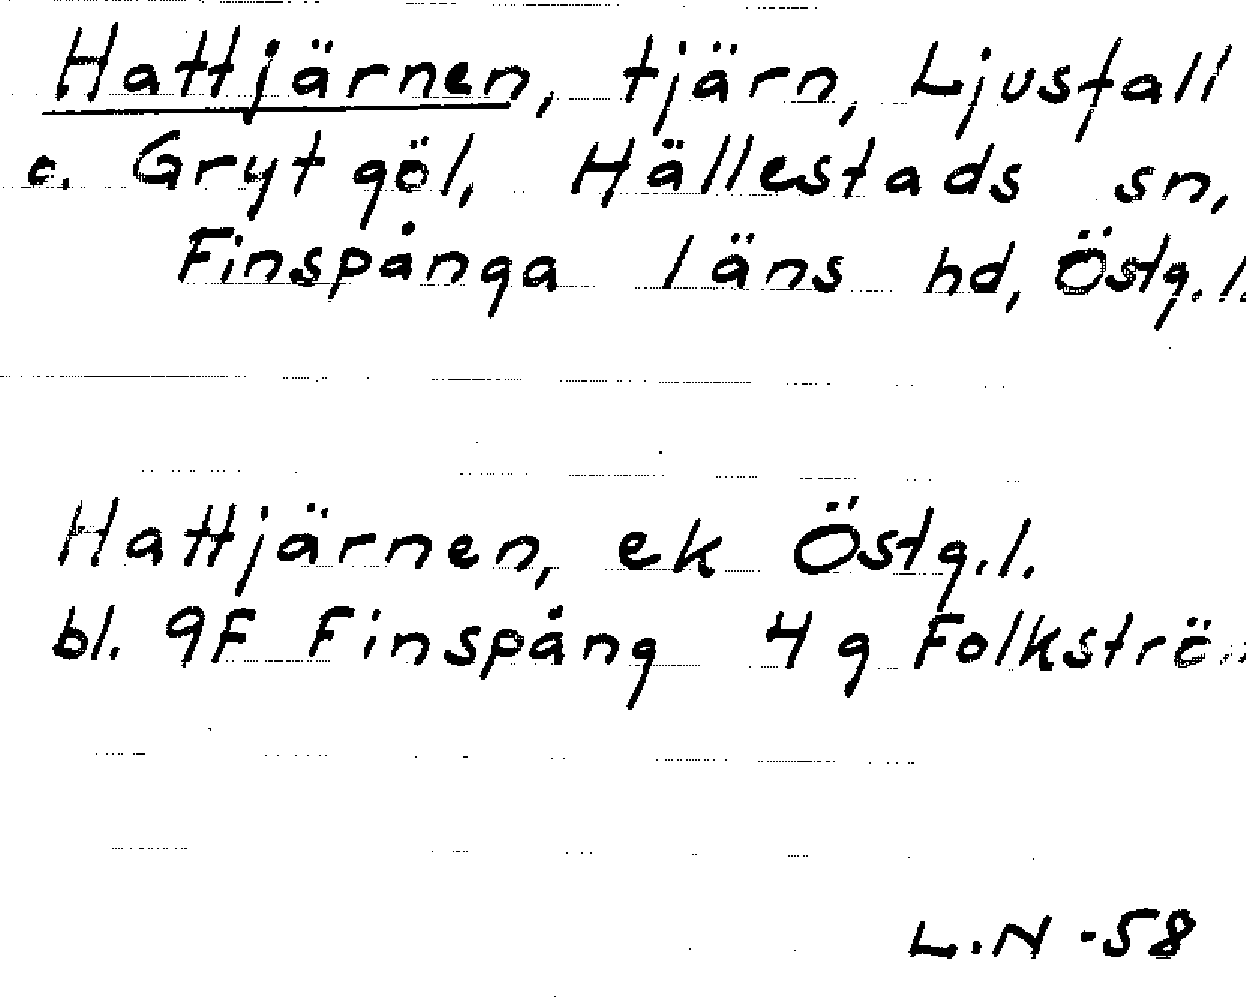 Hattjärnen, tjärn, Ljusfall
c. Grytgöl, Hällestads sn,
Finspånga läns hd, Östg.l.
Hattjärnen, ek Östg.l.
bl. 9F Finspång 4 g Folkströ
L.N -58